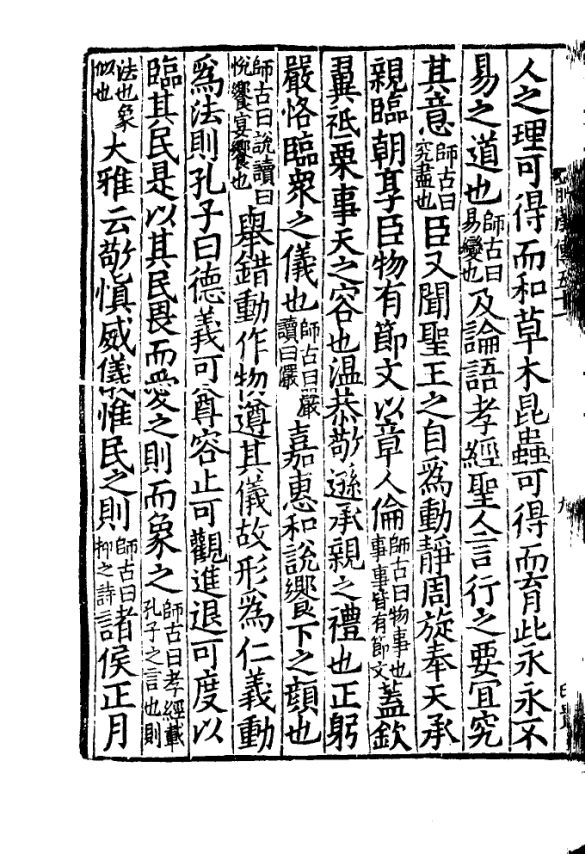 人之理可得而和草木昆蟲可得而育此永永不
易之道也師古曰易變也及論語孝經聖人言行之要宜究
其意師古曰究盡也臣又聞聖王之自爲動靜周旋奉天承
親臨朝享臣物有節文以章人倫師古曰物事也事事皆有節文蓋欽
翼祗栗事天之容也溫恭敬遜承親之禮也正躬
嚴恪臨衆之儀也師古曰嚴讀曰儼嘉惠和說饗下之顔也
師古曰說讀曰悅饗宴饗也舉錯動作物遵其儀故形爲仁義動
爲法則孔子曰德義可尊容止可觀進退可度以
臨其民是以其民畏而愛之則而象之師古曰孝經載孔子之言也則
法也象似也大雅云敬慎威儀惟民之則師古曰抑之詩諸侯正月